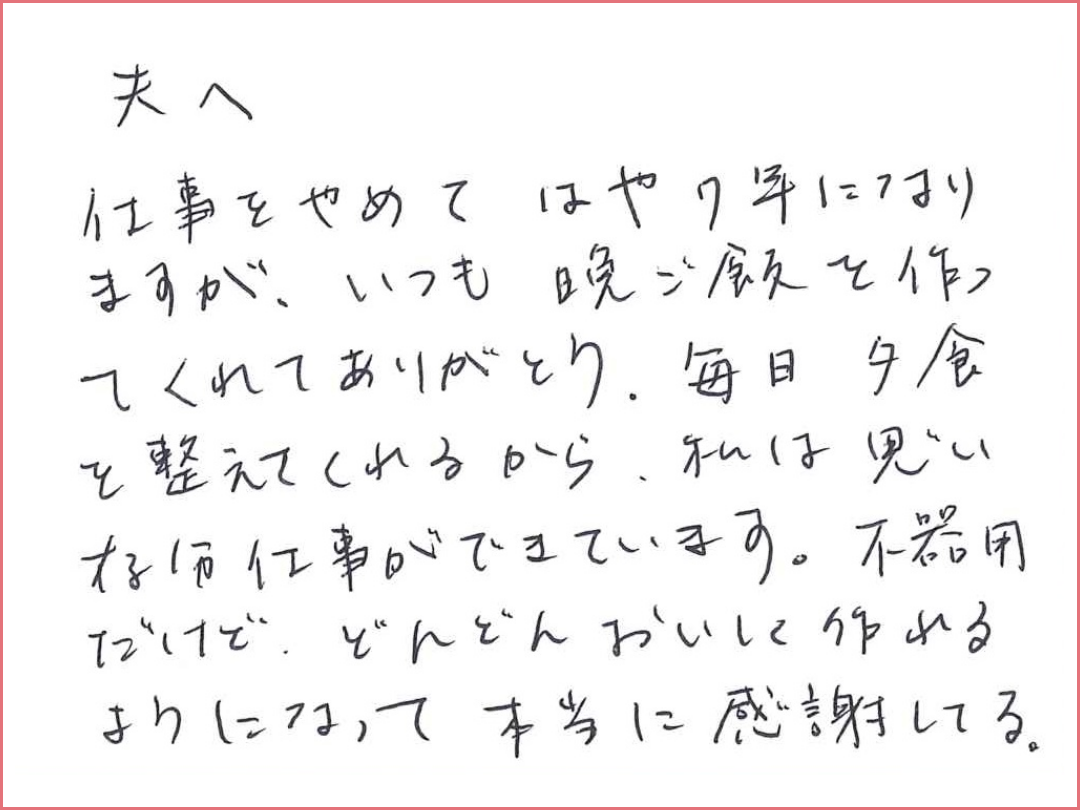 夫へ
仕事をやめて はや7年になり
ますが、いつも 晩ご飯を作っ
てくれてありがとう。毎日 夕食
を整えてくれるから、私は思い
存分仕事ができています。不器用
だけど、どんどんおいしく作れる
ようになって 本当に感謝してる。